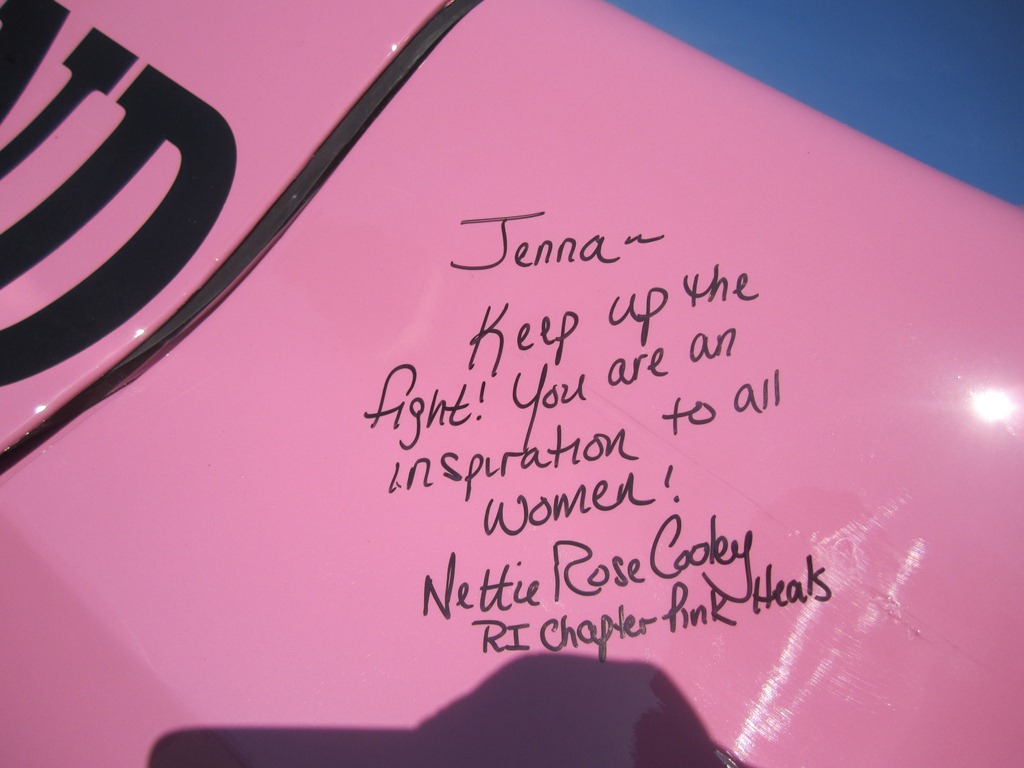 ND
Jenna ~
Keep up the
fight! You are an
inspiration to all
women!
Nettie Rose Cooley
RI Chapter Pink Heals